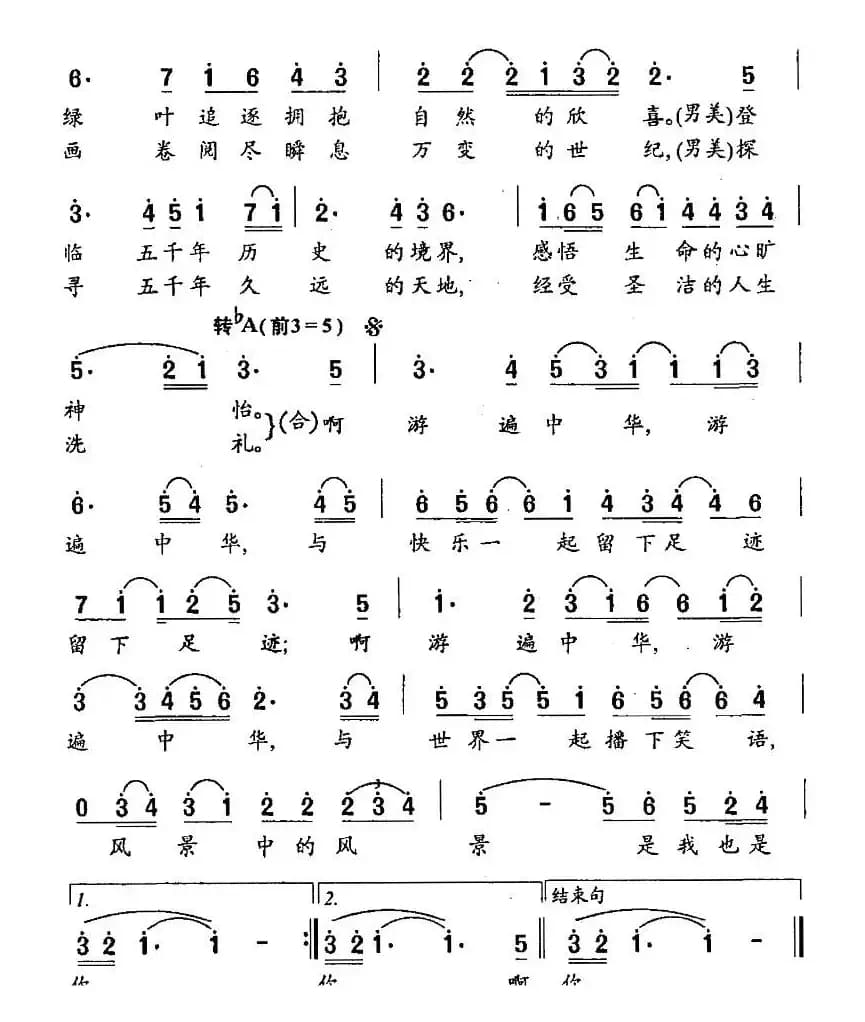 6· 7 1 6 4 3 | 2 2 2 1 3 2 2· 5 |
绿 叶 追 逐 拥 抱 自 然 的 欣 喜。(男美)登
画 卷 阅 尽 瞬 息 万 变 的 世 纪,(男美)探
3· 4 5 1 7 1 | 2· 4 3 6· | 1 6 5 6 1 4 4 3 4 |
临 五 千 年 历 史 的 境 界, 感 悟 生 命 的 心 旷
寻 五 千 年 久 远 的 天 地, 经 受 圣 洁 的 人 生
转♭A(前3=5) 𝄋
5· 2 1 3· 5 | 3· 4 5 3 1 1 1 3 |
神 怡。}(合)啊 游 遍 中 华, 游
洗 礼。
6· 5 4 5· 4 5 | 6 5 6 6 1 4 3 4 4 6 |
遍 中 华, 与 快 乐 一 起 留 下 足 迹
7 1 1 2 5 3· 5 | 1· 2 3 1 6 6 1 2 |
留 下 足 迹; 啊 游 遍 中 华, 游
3 3 4 5 6 2· 3 4 | 5 3 5 5 1 6 5 6 6 4 |
遍 中 华, 与 世 界 一 起 播 下 笑 语,
3
0 3 4 3 1 2 2 2 3 4 | 5 - 5 6 5 2 4 |
风 景 中 的 风 景 是 我 也 是
1. 2. 结束句
3 2 1· 1 - :‖ 3 2 1· 1 5 ‖ 3 2 1· 1 - ‖
你 你 啊 你